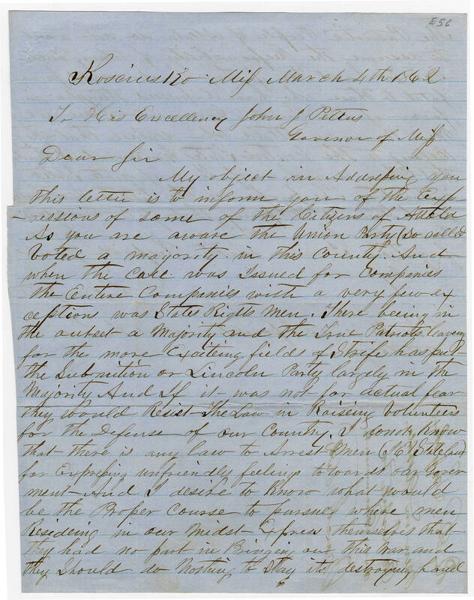 E56
Roscius P.O. Miss March 4th 1862
To His Excellency John J Pettus
Governor of Miss
Dear Sir
My object in Addressing you
this letter is to inform you of the Exp
ressions of some of the Citizens of Attala
As you are aware the Union Party (so called)
Voted a majority in this County. And
when the Call was Issued for Companies
the Entire Companies with a very few ex
ceptions was States Rights Men. There being in
the outset a Majority and the True Patriots leaving
for the more Exciting fields of Strife has put
the Submition or Lincoln Party largely in the
Majority And If it was not for actual fear
they would Resist the Law in Raising Volunteers
for the Defense of our Country. I donot Know
that there is any law to Arrest Men
for Expressing unfriendly feelings towards our Gover
ment And I desire to Know what would
be the Proper Course to pursue where men
Resideing in our Midst Express themselves that
they had no part in Bringing on this War and
they Should do Nothing to Stay its destroying hand